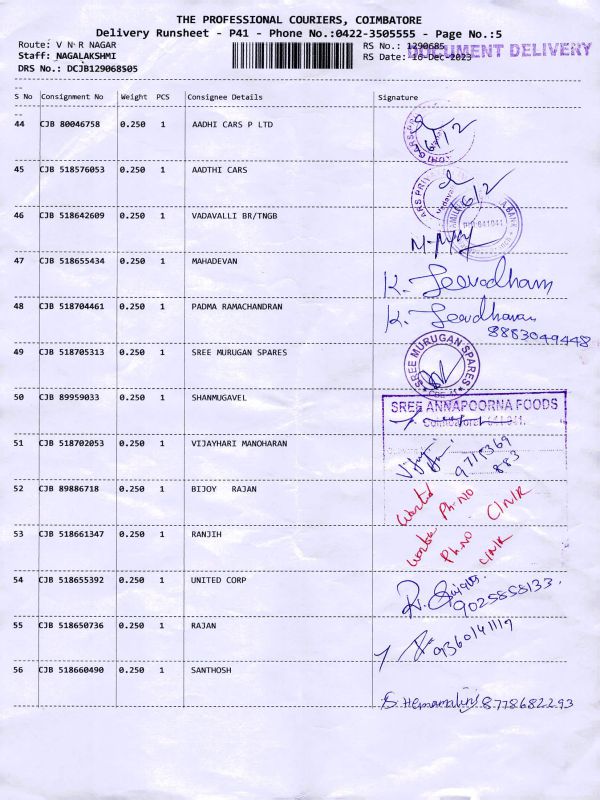 THE PROFESSIONAL COURIERS, COIMBATORE
Delivery Runsheet - P41 - Phone No.:0422-3505555 - Page No.:5
Route: V N R NAGAR
RS No.: 1290685
DOCUMENT DELIVERY
Staff: NAGALAKSHMI
RS Date: 16-Dec-2023
DRS No.: DCJB129068505
S No Consignment No Weight PCS Consignee Details Signature
44 CJB 80046758 0.250 1 AADHI CARS P LTD
16/12
45 CJB 518576053 0.250 1 AADTHI CARS
16/2
46 CJB 518642609 0.250 1 VADAVALLI BR/TNGB
641041
47 CJB 518655434 0.250 1 MAHADEVAN
K.
48 CJB 518704461 0.250 1 PADMA RAMACHANDRAN
K.
8883049448
49 CJB 518705313 0.250 1 SREE MURUGAN SPARES
SREE MURUGAN SPARES
50 CJB 89959033 0.250 1 SHANMUGAVEL
SREE ANNAPOORNA FOODS
51 CJB 518702053 0.250 1 VIJAYHARI MANOHARAN
883
52 CJB 89886718 0.250 1 BIJOY RAJAN
Ph.NO
53 CJB 518661347 0.250 1 RANJIH
Ph.NO
54 CJB 518655392 0.250 1 UNITED CORP
9025858133.
55 CJB 518650736 0.250 1 RAJAN
56 CJB 518660490 0.250 1 SANTHOSH
S. Hemamalini 8778682293